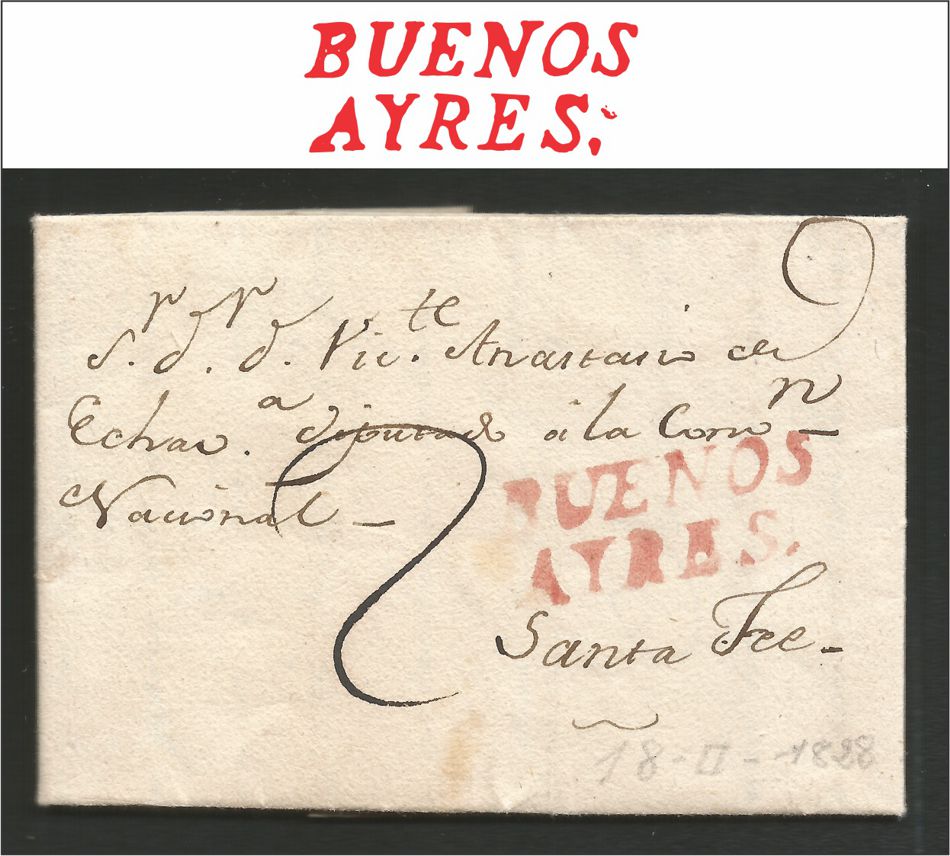 BUENOS
AYRES;
S.ʳ D. D. Vic.te Anastasio de
Echav.a diputado á la Conv.n
Nacional _
2
BUENOS
AYRES.
Santa Fee _
18-II-1828